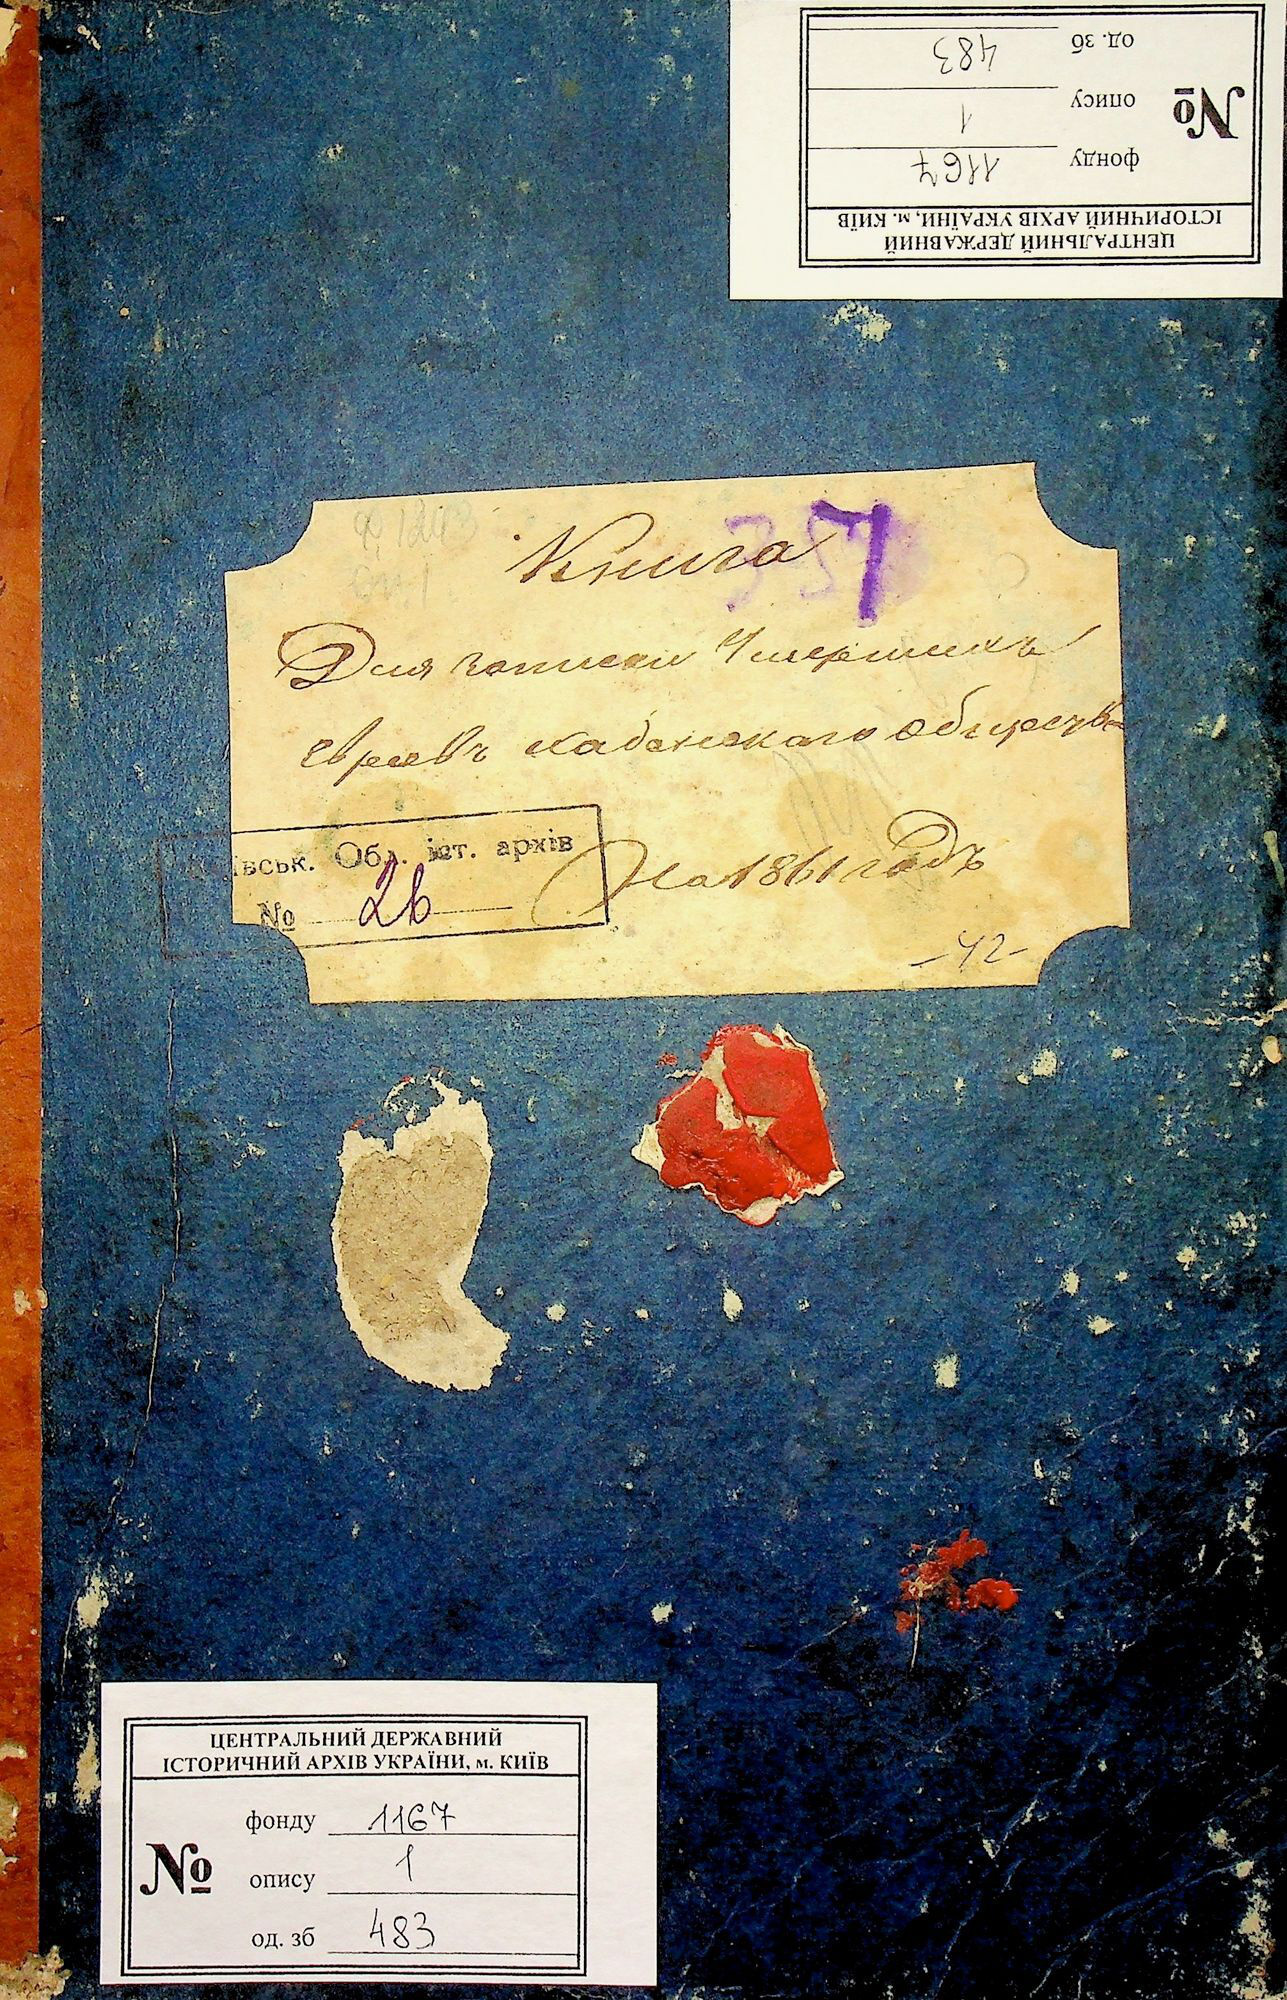 ЦЕНТРАЛЬНИЙ ДЕРЖАВНИЙ
ІСТОРИЧНИЙ АРХІВ УКРАЇНИ, м. КИЇВ
№
фонду 1167
опису 1
од. зб 483
Ф. 1243
оп. 1
357
Книга
Для записки Умершихъ
Евреевъ Кабанскаго Общества
На 1861 годъ
івськ. Обл. іст. архів
№ 26
-42-
ЦЕНТРАЛЬНИЙ ДЕРЖАВНИЙ
ІСТОРИЧНИЙ АРХІВ УКРАЇНИ, м. КИЇВ
№
фонду 1167
опису 1
од. зб 483